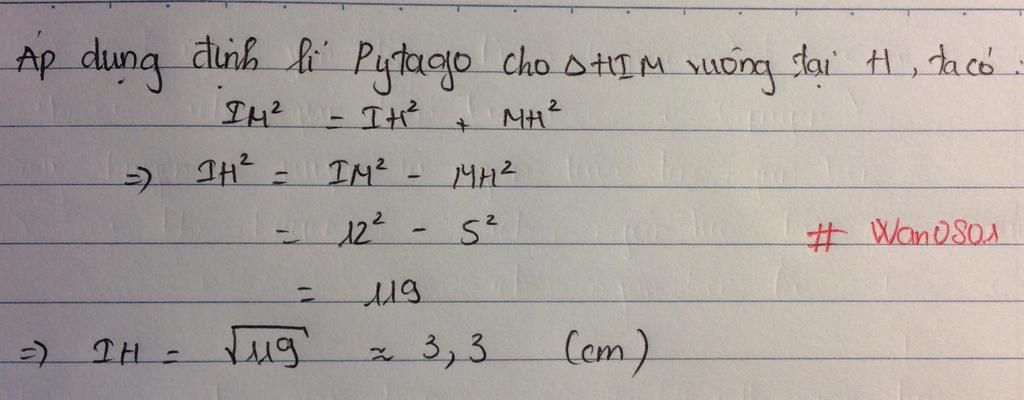 Áp dụng định lí Pytago cho △HIM vuông tại H, ta có:
IM² = IH² + MH²
=> IH² = IM² - MH²
= 12² - 5²
= 119
# Wan0801
=> IH = √119 ≈ 3,3 (cm)